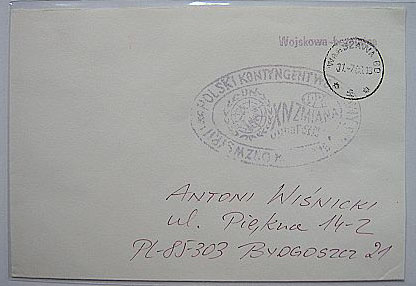 Wojskowa-
WARSZAWA
POLSKI KONTYNGENT
UN
XIV ZMIANA
ANTONI WIŚNICKI
ul. Piękna 14-2
PL-85-303 BYDGOSZCZ 21